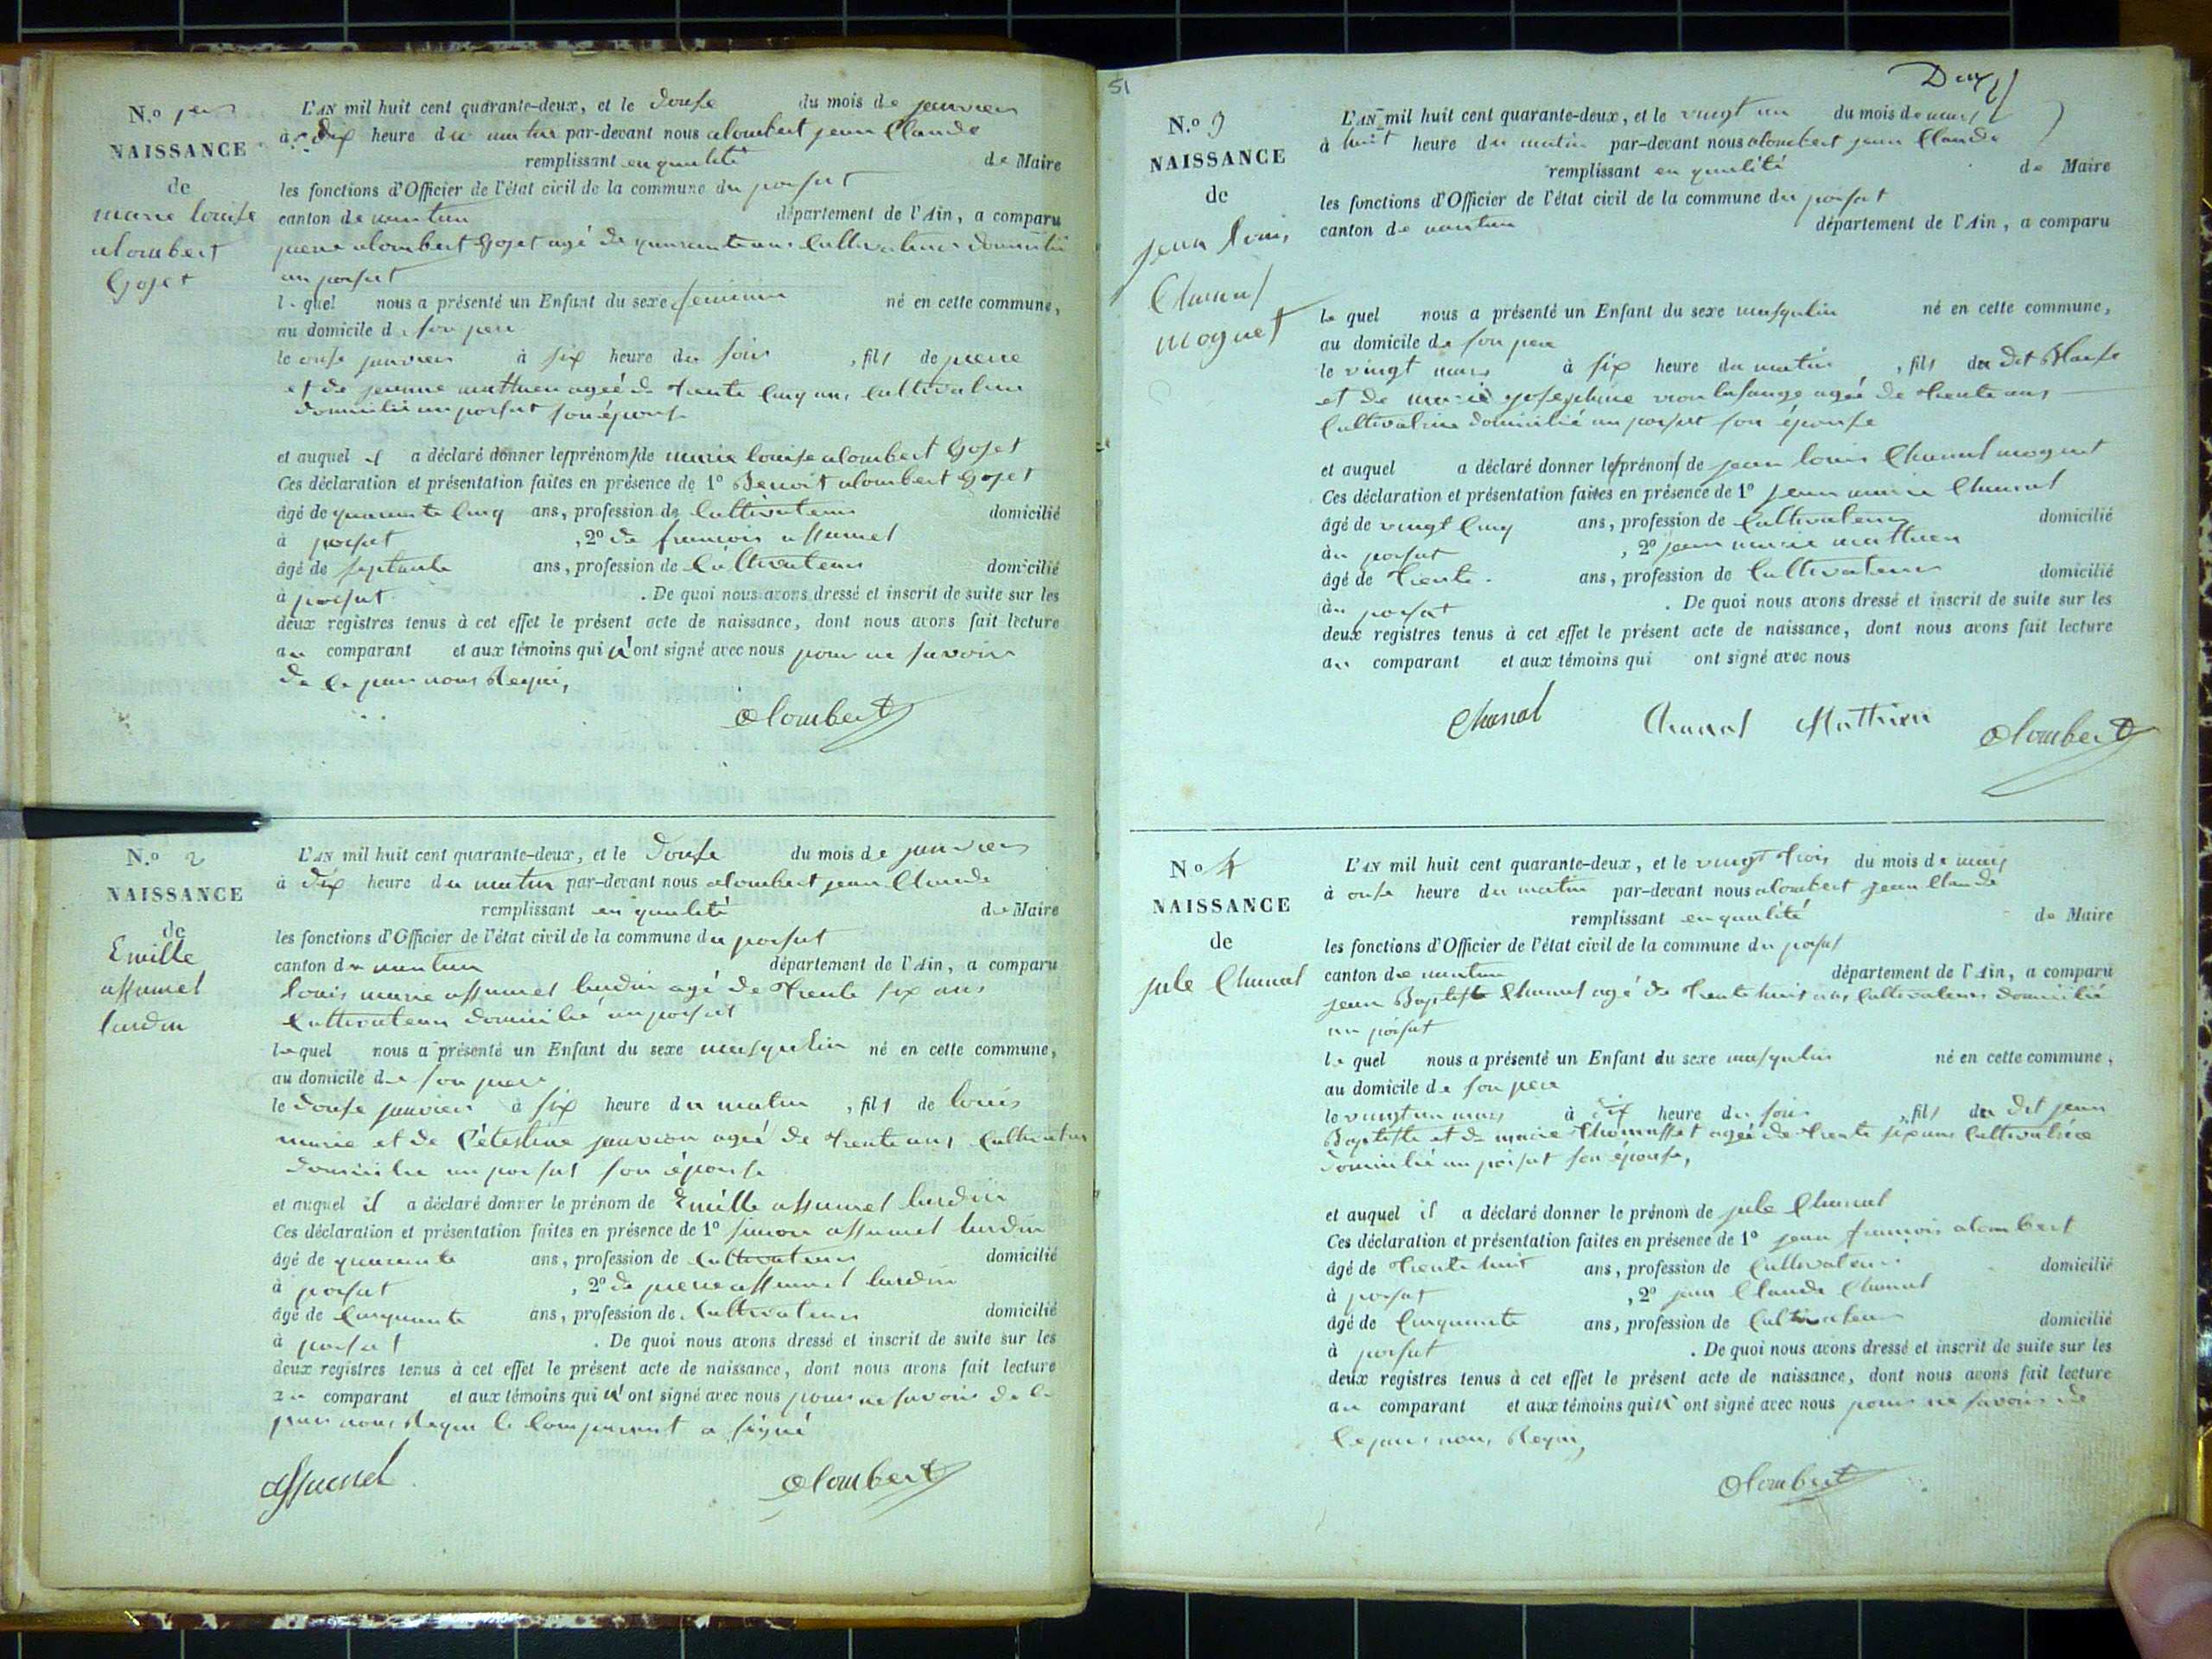 N.o 1er
NAISSANCE
de
marie louise
alombert
Gojet
L'AN mil huit cent quarante-deux, et le douse du mois de janvier
à dix heure du matin par-devant nous alombert jean Claude
remplissant en qualité de Maire
les fonctions d'Officier de l'état civil de la commune du poisat
canton de nantua département de l'Ain, a comparu
pierre alombert Gojet agé de quarante ans Cultivateur domicilié
au poisat
le quel nous a présenté un Enfant du sexe feminin né en cette commune,
au domicile de son pere
le onse janvier à six heure du soir , fils de pierre
et de jeanne mathieu ageé de trente Cinq ans, Cultivatrice
domicilié au poisat son épouse
et auquel il a déclaré donner les prénoms de marie louise alombert Gojet
Ces déclaration et présentation faites en présence de 1o Benoit alombert Gojet
âgé de quarante Cinq ans, profession de Cultivateur domicilié
à poisat , 2o de francois assumel
âgé de septante ans, profession de Cultivateur domicilié
à poisat . De quoi nous avons dressé et inscrit de suite sur les
deux registres tenus à cet effet le présent acte de naissance, dont nous avons fait lecture
au comparant et aux témoins qui n'ont signé avec nous pour ne savoir
de Ce par nous Requi,
alombert
N.o 2
NAISSANCE
de
Emille
assumel
lurdin
L'AN mil huit cent quarante-deux, et le douse du mois de janvier
à dix heure du matin par-devant nous alombert jean Claude
remplissant en qualité de Maire
les fonctions d'Officier de l'état civil de la commune du poisat
canton de nantua département de l'Ain, a comparu
louis marie assumel lurdin agé de trente six ans
Cultivateur domicilié au poisat
le quel nous a présenté un Enfant du sexe masqulin né en cette commune,
au domicile de son pere
le douse janvier à six heure du matin , fils de louis
marie et de Célestine janvion ageé de trente ans, Cultivatrice
domicilié au poisat son épouse
et auquel il a déclaré donner le prénom de Emille assumel lurdin
Ces déclaration et présentation faites en présence de 1o simon assumel lurdin
âgé de quarante ans, profession de Cultivateur domicilié
à poisat , 2o de pierre assumel lurdin
âgé de Cinquante ans, profession de Cultivateur domicilié
à poisat . De quoi nous avons dressé et inscrit de suite sur les
deux registres tenus à cet effet le présent acte de naissance, dont nous avons fait lecture
au comparant et aux témoins qui n'ont signé avec nous pour ne savoir de Ce
par nous Requi le Comparant a signé
assumel alombert
51
Deux
N.o 3
NAISSANCE
de
jean louis
Chanal
moguet
L'AN mil huit cent quarante-deux, et le vingt un du mois de mars
à huit heure du matin par-devant nous alombert jean Claude
remplissant en qualité de Maire
les fonctions d'Officier de l'état civil de la commune du poisat
canton de nantua département de l'Ain, a comparu
le quel nous a présenté un Enfant du sexe masqulin né en cette commune,
au domicile de son pere
le vingt mars à six heure du matin , fils du dit Blaise
et de marie josephine ageé de trente ans
Cultivatrice domicilié au poisat son épouse
et auquel a déclaré donner les prénoms de jean louis Chanal moguet
Ces déclaration et présentation faites en présence de 1o jean marie Chanal
âgé de vingt Cinq ans, profession de Cultivateur domicilié
àu poisat , 2o jean marie mathieu
âgé de trente ans, profession de Cultivateur domicilié
àu poisat . De quoi nous avons dressé et inscrit de suite sur les
deux registres tenus à cet effet le présent acte de naissance, dont nous avons fait lecture
au comparant et aux témoins qui ont signé avec nous
Chanal Chanal Mathieu alombert
No 4
NAISSANCE
de
jule Chanal
L'AN mil huit cent quarante-deux, et le vingt trois du mois de mars
à onse heure du matin par-devant nous alombert jean Claude
remplissant en qualité de Maire
les fonctions d'Officier de l'état civil de la commune du poisat
canton de nantua département de l'Ain, a comparu
jean Baptiste Chanal agé de trente huit ans Cultivateur domicilié
au poisat
le quel nous a présenté un Enfant du sexe masqulin né en cette commune,
au domicile de son pere
le vingt un mars à heure du soir , fils du dit jean
Baptiste et de marie thomasset ageé de trente six ans Cultivatrice
domicilié au poisat son épouse,
et auquel il a déclaré donner le prénom de jule Chanal
Ces déclaration et présentation faites en présence de 1o jean francois alombert
âgé de trente huit ans, profession de Cultivateur domicilié
à poisat , 2o jean Claude Chanal
âgé de Cinquante ans, profession de Cultivateur domicilié
à poisat . De quoi nous avons dressé et inscrit de suite sur les
deux registres tenus à cet effet le présent acte de naissance, dont nous avons fait lecture
au comparant et aux témoins qui n'ont signé avec nous pour ne savoir de
Ce par nous Requi,
alombert